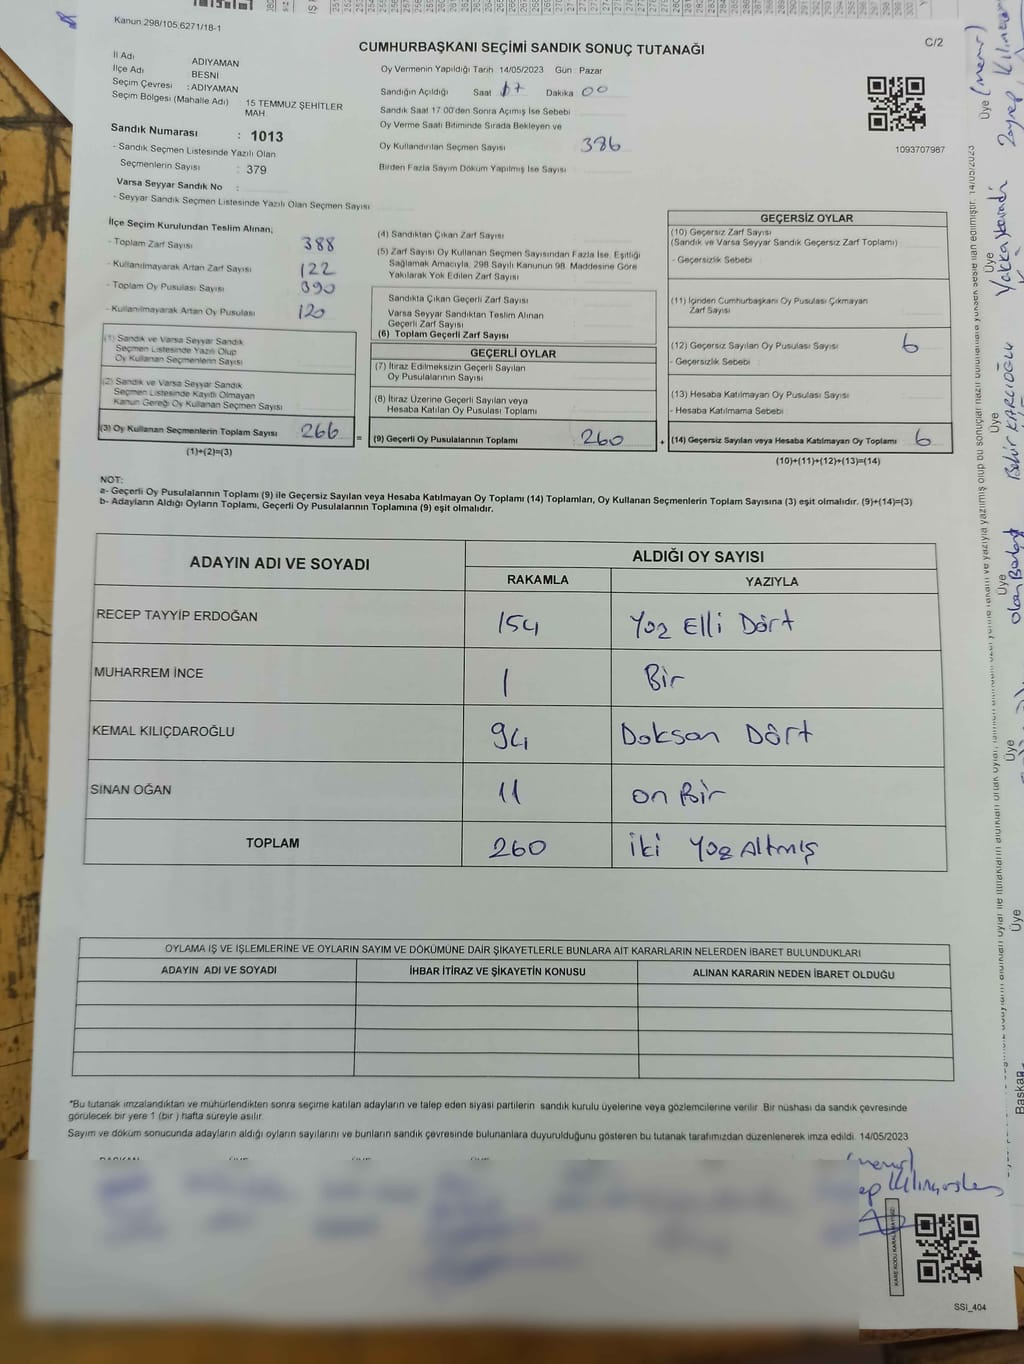 Kanun.298/105,6271/18-1
C/2
CUMHURBAŞKANI SEÇİMİ SANDIK SONUÇ TUTANAĞI
İl Adı ADIYAMAN
İlçe Adı BESNİ
Seçim Çevresi :ADIYAMAN
Seçim Bölgesi (Mahalle Adı) 15 TEMMUZ ŞEHİTLER
MAH.
Sandık Numarası : 1013
- Sandık Seçmen Listesinde Yazılı Olan
Seçmenlerin Sayısı : 379
Varsa Seyyar Sandık No :
- Seyyar Sandık Seçmen Listesinde Yazılı Olan Seçmen Sayısı
Oy Vermenin Yapıldığı Tarih 14/05/2023 Gün Pazar
Sandığın Açıldığı Saat 17 Dakika 00
Sandık Saat 17.00'den Sonra Açımış İse Sebebi
Oy Verme Saati Bitiminde Sırada Bekleyen ve
Oy Kullandırılan Seçmen Sayısı 386
Birden Fazla Sayım Döküm Yapılmış İse Sayısı
1093707987
İlçe Seçim Kurulundan Teslim Alınan;
- Toplam Zarf Sayısı 388
- Kullanılmayarak Artan Zarf Sayısı 122
- Toplam Oy Pusulası Sayısı 390
- Kullanılmayarak Artan Oy Pusulası 120
(1) Sandık ve Varsa Seyyar Sandık
Seçmen Listesinde Yazılı Olup
Oy Kullanan Seçmenlerin Sayısı
(2) Sandık ve Varsa Seyyar Sandık
Seçmen Listesinde Kayıtlı Olmayan
Kanun Gereği Oy Kullanan Seçmen Sayısı
(3) Oy Kullanan Seçmenlerin Toplam Sayısı 266 =
(1)+(2)=(3)
(4) Sandıktan Çıkan Zarf Sayısı
(5) Zarf Sayısı Oy Kullanan Seçmen Sayısından Fazla İse, Eşitliği
Sağlamak Amacıyla, 298 Sayılı Kanunun 98. Maddesine Göre
Yakılarak Yok Edilen Zarf Sayısı
Sandıkta Çıkan Geçerli Zarf Sayısı
Varsa Seyyar Sandıktan Teslim Alınan
Geçerli Zarf Sayısı
(6) Toplam Geçerli Zarf Sayısı
GEÇERLİ OYLAR
(7) İtiraz Edilmeksizin Geçerli Sayılan
Oy Pusulalarının Sayısı
(8) İtiraz Üzerine Geçerli Sayılan veya
Hesaba Katılan Oy Pusulası Toplamı
(9) Geçerli Oy Pusulalarının Toplamı 260 +
GEÇERSİZ OYLAR
(10) Geçersiz Zarf Sayısı
(Sandık ve Varsa Seyyar Sandık Geçersiz Zarf Toplamı)
- Geçersizlik Sebebi
(11) İçinden Cumhurbaşkanı Oy Pusulası Çıkmayan
Zarf Sayısı
(12) Geçersiz Sayılan Oy Pusulası Sayısı 6
- Geçersizlik Sebebi
(13) Hesaba Katılmayan Oy Pusulası Sayısı
- Hesaba Katılmama Sebebi
(14) Geçersiz Sayılan veya Hesaba Katılmayan Oy Toplamı 6
(10)+(11)+(12)+(13)=(14)
NOT:
a- Geçerli Oy Pusulalarının Toplamı (9) ile Geçersiz Sayılan veya Hesaba Katılmayan Oy Toplamı (14) Toplamları, Oy Kullanan Seçmenlerin Toplam Sayısına (3) eşit olmalıdır. (9)+(14)=(3)
b- Adayların Aldığı Oyların Toplamı, Geçerli Oy Pusulalarının Toplamına (9) eşit olmalıdır.
ADAYIN ADI VE SOYADI ALDIĞI OY SAYISI
RAKAMLA YAZIYLA
RECEP TAYYİP ERDOĞAN 154 Yüz Elli Dört
MUHARREM İNCE 1 Bir
KEMAL KILIÇDAROĞLU 94 Doksan Dört
SİNAN OĞAN 11 on Bir
TOPLAM 260 iki Yüz Altmış
OYLAMA İŞ VE İŞLEMLERİNE VE OYLARIN SAYIM VE DÖKÜMÜNE DAİR ŞİKAYETLERLE BUNLARA AİT KARARLARIN NELERDEN İBARET BULUNDUKLARI
ADAYIN ADI VE SOYADI İHBAR İTİRAZ VE ŞİKAYETİN KONUSU ALINAN KARARIN NEDEN İBARET OLDUĞU
*Bu tutanak imzalandıktan ve mühürlendikten sonra seçime katılan adayların ve talep eden siyasi partilerin sandık kurulu üyelerine veya gözlemcilerine verilir. Bir nüshası da sandık çevresinde
görülecek bir yere 1 (bir ) hafta süreyle asılır.
Sayım ve döküm sonucunda adayların aldığı oyların sayılarını ve bunların sandık çevresinde bulunanlara duyurulduğunu gösteren bu tutanak tarafımızdan düzenlenerek imza edildi. 14/05/2023
SSi_404
Başkan
Üye
Üye
Üye
Üye
Üye
Üye (memur)